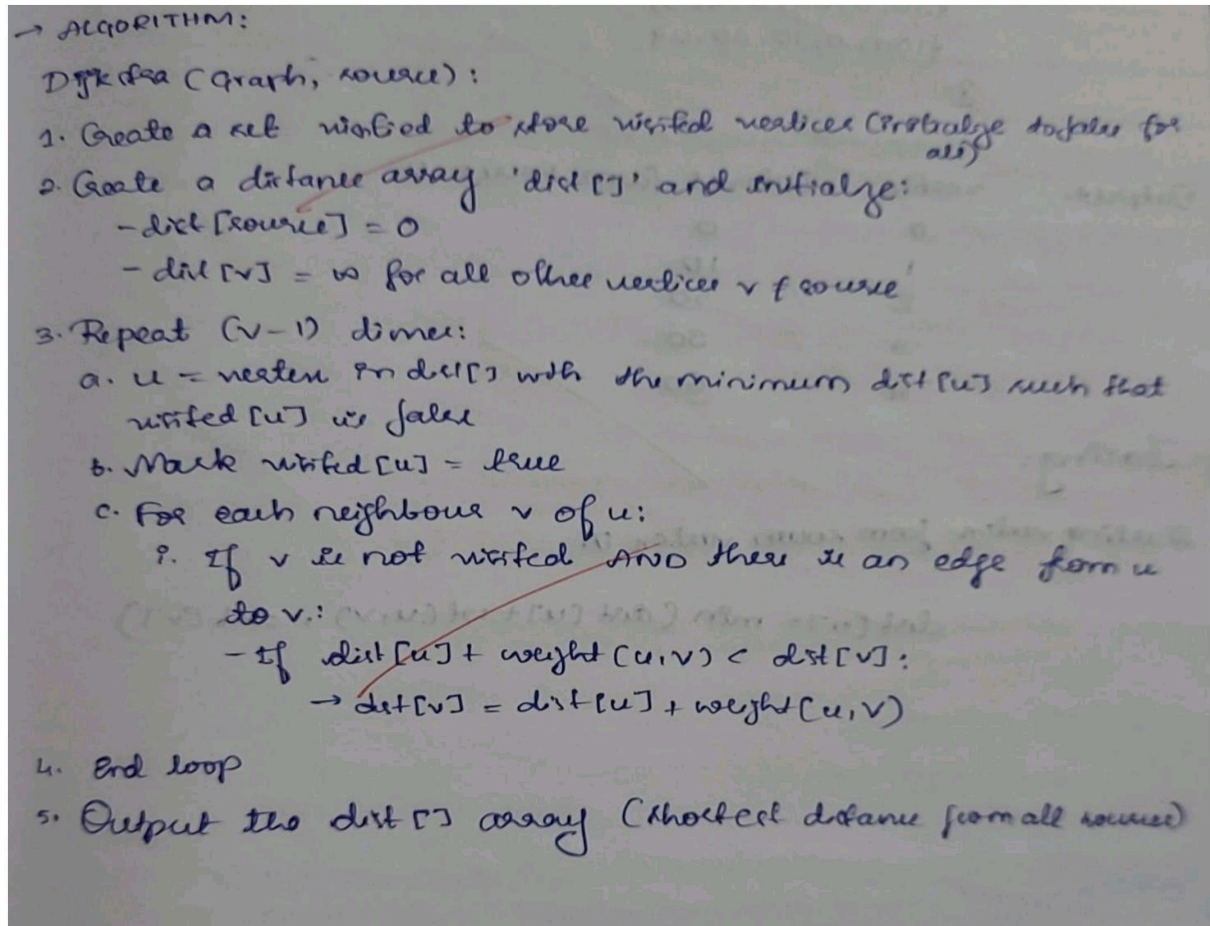 → ALGORITHM:
Dijkstra (Graph, source):
1. Create a set visited to store visited vertices (initialize to false for
all)
2. Create a distance array 'dist []' and initialize:
- dist [source] = 0
- dist [v] = ∞ for all other vertices v ≠ source
3. Repeat (v-1) times:
a. u = vertex in dist[] with the minimum dist [u] such that
visited [u] is false
b. Mark visited [u] = true
c. For each neighbour v of u:
i. If v is not visited AND there is an edge from u
to v.:
- If dist [u] + weight (u,v) < dist [v]:
→ dist [v] = dist [u] + weight (u,v)
4. End loop
5. Output the dist [] array (shortest distance from all source)